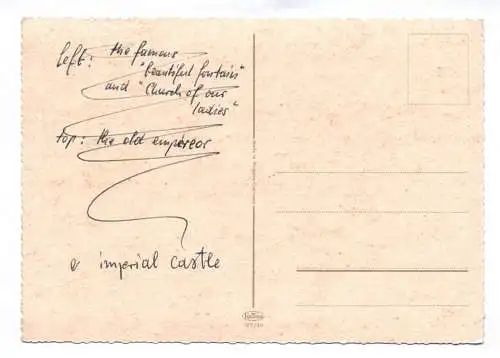 left: the famous
"beautiful fontain"
and "Church of our
ladies"
top: the old emperor
e imperial castle